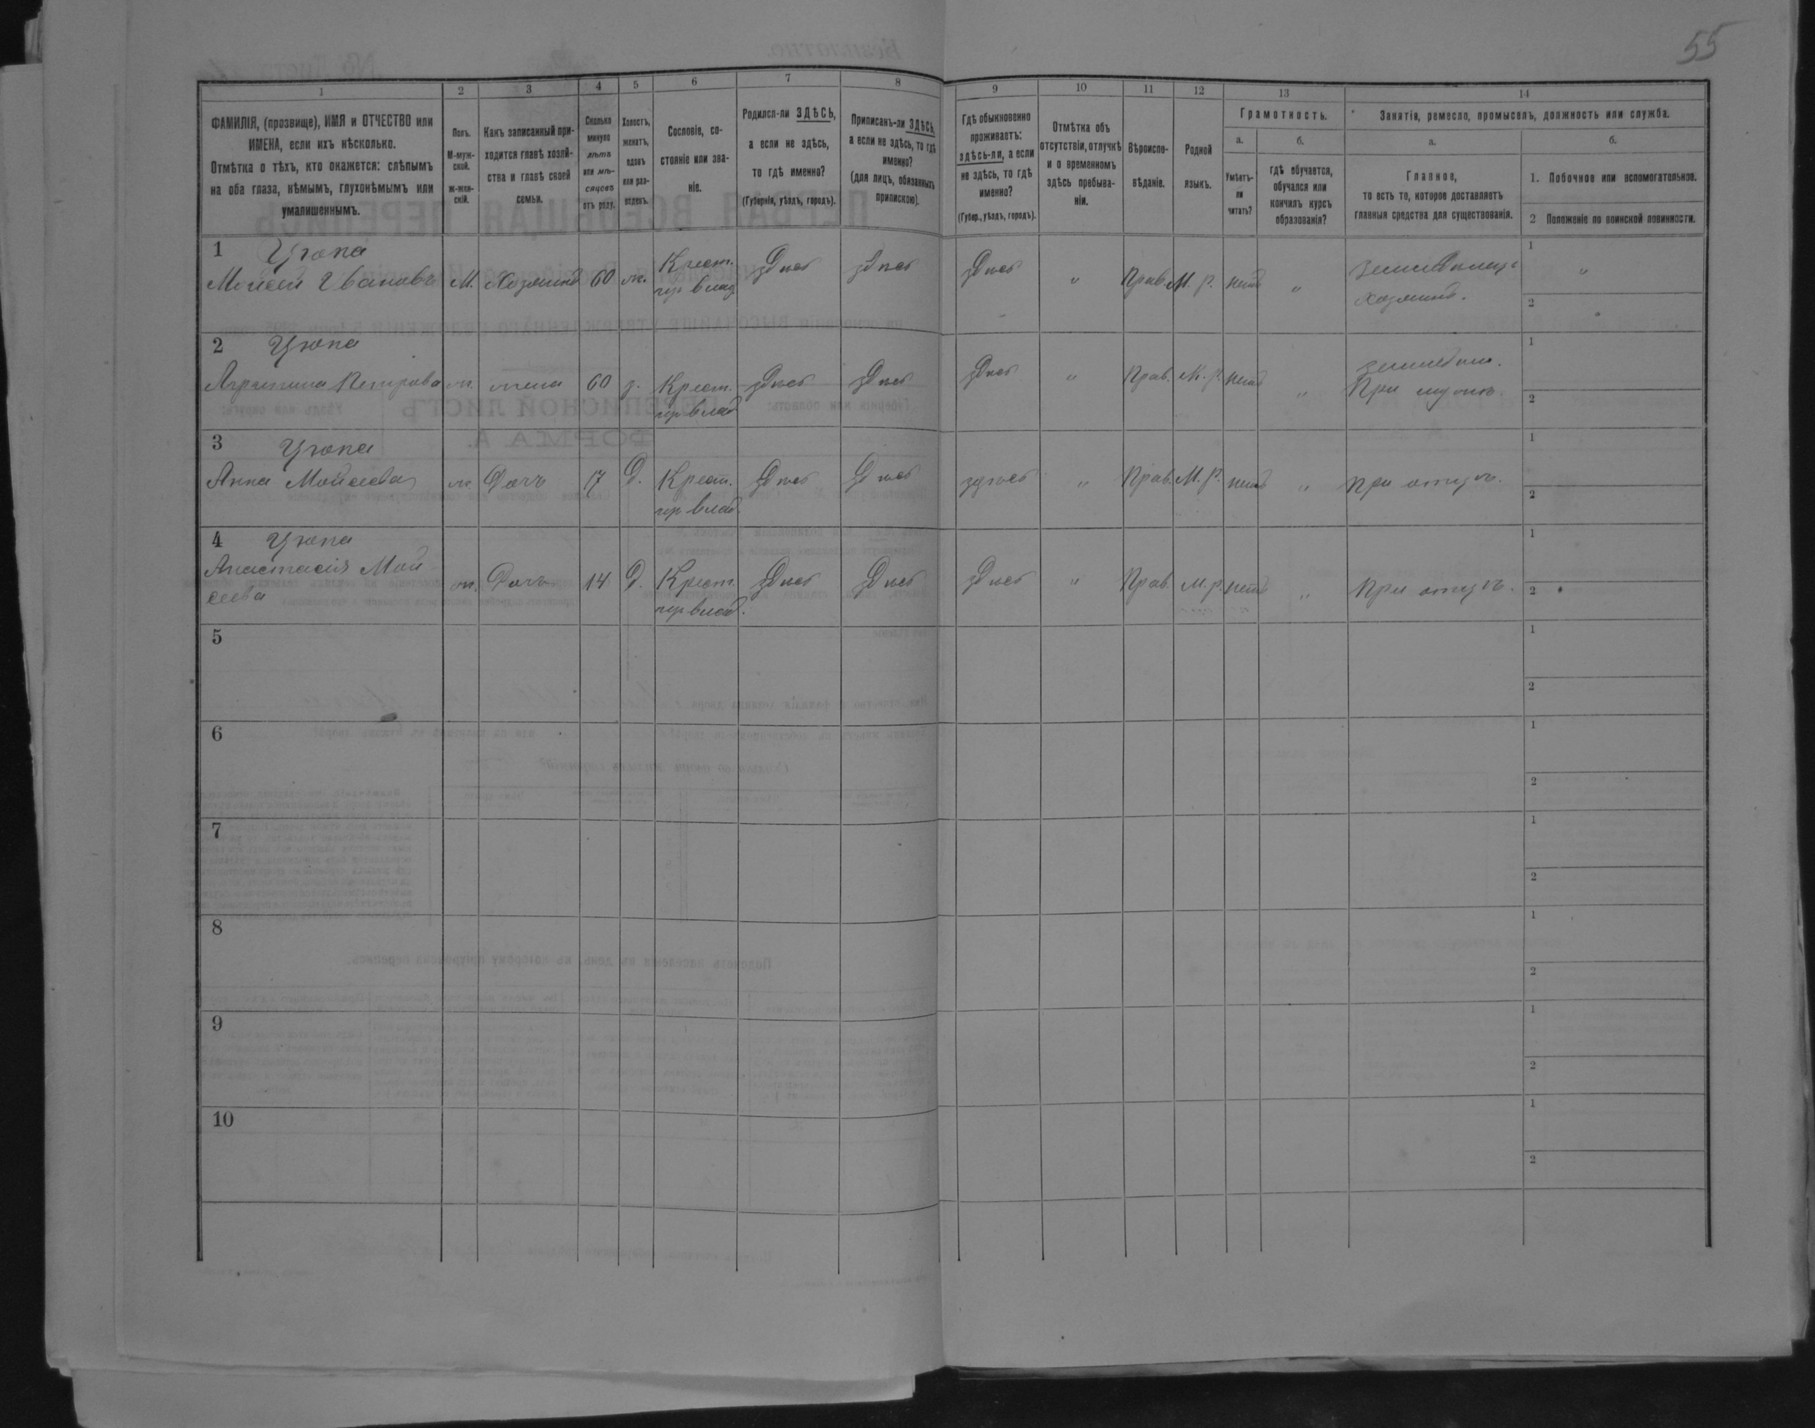 55
1
2
3
4
5
6
7
8
9
10
11
12
13
14
ФАМИЛІЯ, (прозвище), ИМЯ и ОТЧЕСТВО или
ИМЕНА, если ихъ нѣсколько.
Отмѣтка о тѣхъ, кто окажется: слѣпымъ
на оба глаза, нѣмымъ, глухонѣмымъ или
умалишеннымъ.
Полъ.
М-муж-
ской.
ж-жен-
скій.
Какъ записанный при-
ходится главѣ хозяй-
ства и главѣ своей
семьи.
Сколько
минуло
лѣтъ
или мѣ-
сяцевъ
отъ роду.
Холостъ,
женатъ,
вдовъ
или раз-
веденъ.
Сословіе, со-
стояніе или зва-
ніе.
Родился-ли ЗДѢСЬ,
а если не здѣсь,
то гдѣ именно?
(Губернія, уѣздъ, городъ).
Приписанъ-ли ЗДѢСЬ,
а если не здѣсь, то гдѣ
именно?
(для лицъ, обязанныхъ
припискою).
Гдѣ обыкновенно
проживаетъ:
здѣсь-ли, а если
не здѣсь, то гдѣ
именно?
(Губер., уѣздъ, городъ).
Отмѣтка объ
отсутствіи, отлучкѣ
и о временномъ
здѣсь пребыва-
ніи.
Вѣроиспо-
вѣданіе.
Родной
языкъ.
Грамотность.
а.
б.
Умѣетъ-
ли
читать?
гдѣ обучается,
обучался или
кончилъ курсъ
образованія?
Занятія, ремесло, промыселъ, должность или служба.
а.
б.
Главное,
то есть то, которое доставляетъ
главныя средства для существованія.
1. Побочное или вспомогательное.
2 Положеніе по воинской повинности.
1 Цюпа
Моисей Ивановъ М. Хозяинъ 60 ж. Крест. Здѣсь Здѣсь Здѣсь " Прав. М. р. нѣтъ "
хозяинъ.
1 "
2
2 Цюпа
Агрипина Петрова ж. жена 60 з. Крест. Здѣсь Здѣсь Здѣсь " Прав. М. р. нѣтъ "
При мужѣ.
1
2
3 Цюпа
Анна Моисеева ж Дочь 17 Д. Крест. Здѣсь Здѣсь здѣсь " Прав. М. р. нѣтъ " При отцѣ.
1
2
4 Цюпа
Анастасія Мой
сеева ж. Дочь 14 Д. Крест. Здѣсь Здѣсь Здѣсь " Прав. М. р. нѣтъ " При отцѣ.
1
2
5
1
2
6
1
2
7
1
2
8
1
2
9
1
2
10
1
2